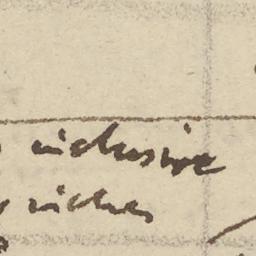 inclusive
inches